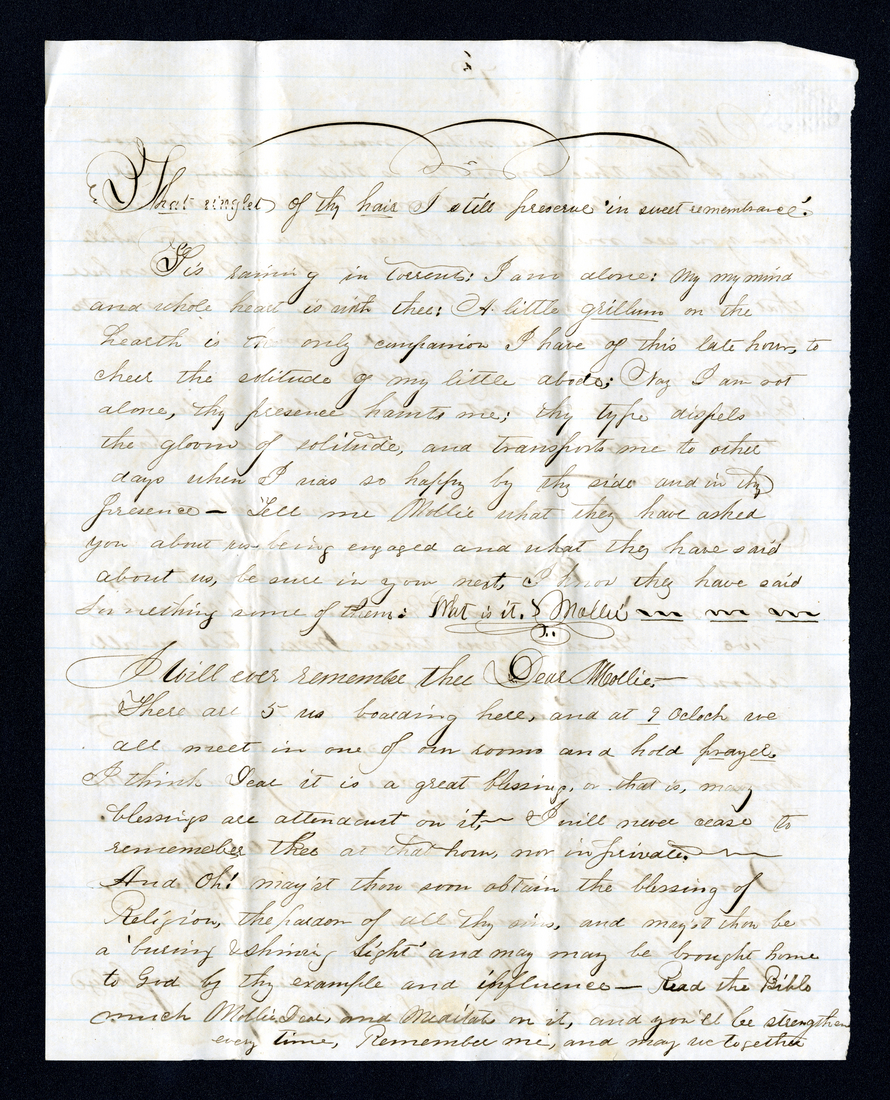 That ringlet of thy hair I still preserve 'in sweet remembrance'.
Tis raining in torrents: I am alone: My my mind
and whole heart is with thee: A little grillum on the
hearth is the only companion I have of this late hour, to
cheer the solitude of my little abode: Nay I am not
alone, thy presence haunts me; thy type dispels
the gloom of solitude, and transports me to other
days when I was so happy by thy side and in thy
presence — Tell me Mollie what they have asked
you about us being engaged and what they have said
about us, be sure in your next, I know they have said
something some of them: What is it. Mollie
I will ever remember thee Dear Mollie, —
There are 5 us boarding here, and at 9 Oclock we
all meet in one of our rooms and hold prayer.
I think Dear it is a great blessing, or that is, may
blessings are attendant on it, — I will never cease to
rememeber thee at that hour, nor in private.
And Oh! may'st thou soon obtain the blessing of
Religion, the pardon of all thy sins, and may'st thou be
a 'buring & shining light' and may may be brought home
to God by thy example and influence — Read the Bible
much Mollie Dear, and Meditate on it, and you'll be strengthen
every time, Remember me, and may we together